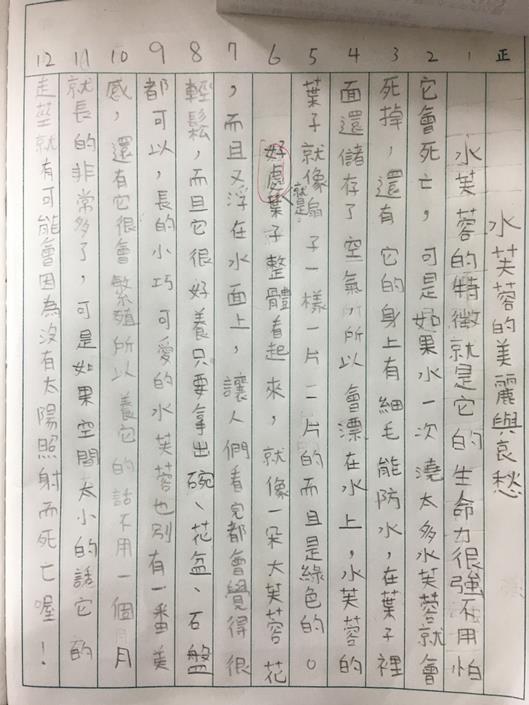 正
水芙蓉的美麗與哀愁
1 水芙蓉的特徵就是它的生命力很強不用怕
2 它會死亡，可是如果水一次澆太多水芙蓉就會
3 死掉，還有它的身上有細毛能防水，在葉子裡
4 面還儲存了空氣，所以會漂在水上，水芙蓉的
5 葉子就像扇子一樣一片一片的而且是綠色的。
6 好處就是葉子整體看起來，就像一朵大芙蓉花
7 ，而且又浮在水面上，讓人們看完都會覺得很
8 輕鬆，而且它很好養只要拿出碗、花盆、石盤
9 都可以，長的小巧可愛的水芙蓉也別有一番美
10 感，還有它很會繁殖所以養它的話不用一個月
11 就長的非常多了，可是如果空間太小的話它的
12 走莖就有可能會因為沒有太陽照射而死亡喔！